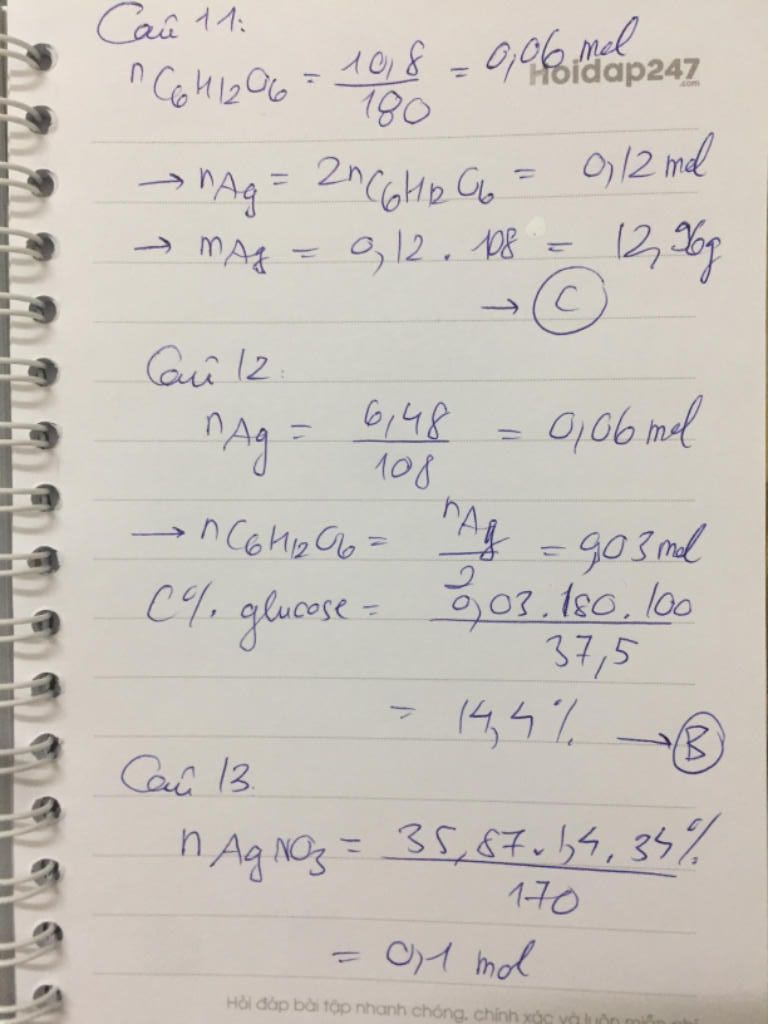 Câu 11:
nC6H12O6 = 10,8/180 = 0,06 mol
Hoidap247
.com
→ nAg = 2nC6H12O6 = 0,12 mol
→ mAg = 0,12 . 108 = 12,96g
→ C
Câu 12:
nAg = 6,48/108 = 0,06 mol
→ nC6H12O6 = nAg/2 = 0,03 mol
C% glucose = 0,03.180.100/37,5
= 14,4% → B
Câu 13.
nAgNO3 = 35,87.1,4.34%/170
= 0,1 mol
Hỏi đáp bài tập nhanh chóng, chính xác và luôn miễn phí